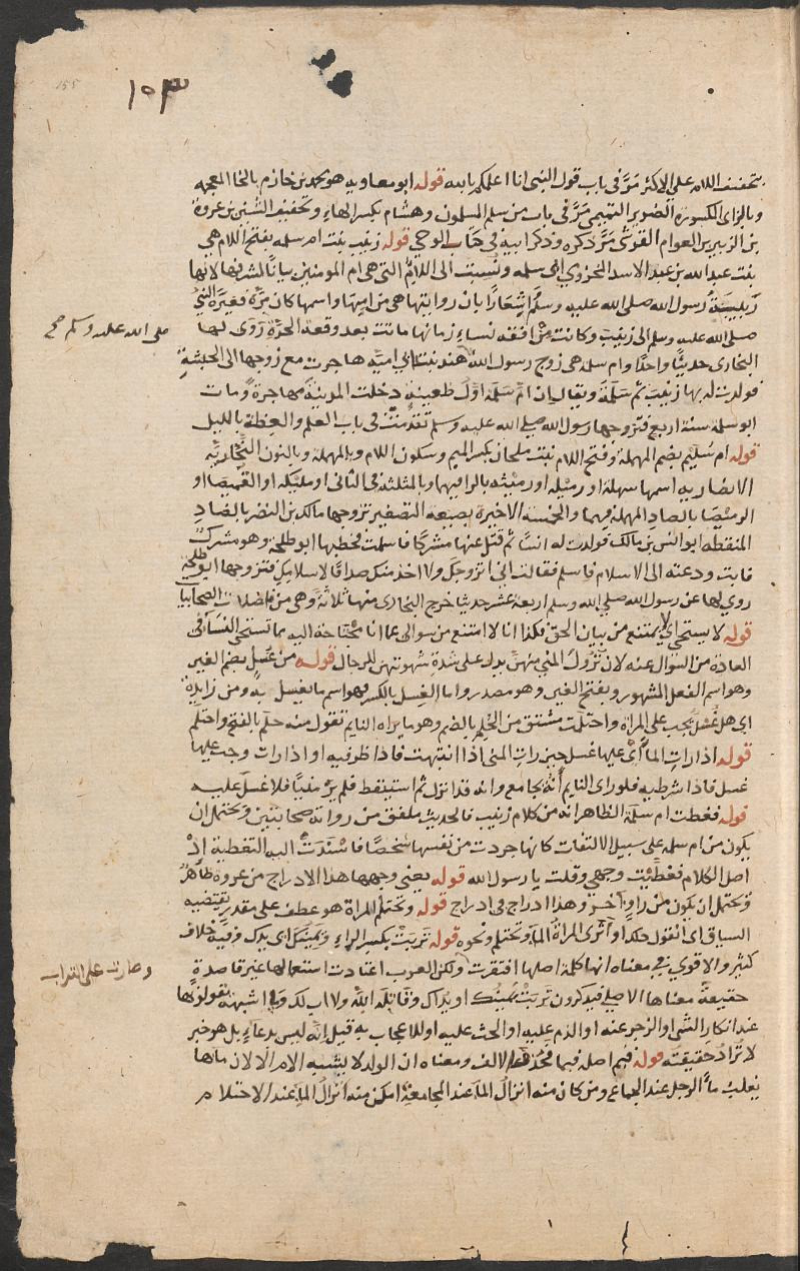 155
١٥٣
بتخفيف اللام على الاكثر مرّ في باب قول النبي انا اعلمكم بالله قوله ابو معاويه هو محمد بن خازم بالخا المعجمه
وبالزاى المكسوره الضرير التميمي مرّ في باب من سلم المسلمون وهشام بكسر الهاء وتخفيف الشين بن عروة
بن الزبير بن العوام القرشي مرّ ذكره وذكر ابيه في كتاب الوحي قوله زينب بنت ام سلمه بفتح اللام هي
بنت عبد الله بن عبد الاسد المخزومي ابي سلمه ونسبت الى اللام التي هي ام المومنين بيانا لشرفها لانها
ربيبة رسول الله صلى الله عليه وسلم اشعارا بان روايتها هي من امها واسمها كان برّة فغيره النبي
صلى الله عليه وسلم الى زينب وكانت من افقه نساء زمانها ماتت بعد وقعة الحرّة روى لها
صلى الله عليه وسلم صح
البخارى حديثا واحدا وام سلمه هي زوج رسول الله هند بنت ابي اميه هاجرت مع زوجها الى الحبشة
فولدت له بها زينب ثم سلمة ويقال ان ام سلمة اوّل ظعينة دخلت المدينة مهاجرة ومات
ابو سلمة سنة اربع فتزوجها رسول الله صلى الله عليه وسلم تقدمت في باب العلم والعظة بالليل
قوله ام سليم بضم المهملة وفتح اللام بنت ملحان بكسر الميم وسكون اللام وبالمهملة وبالنون النجارية
الانصاريه اسمها سهلة او رميله او رميثه بالرا فيهما وبالمثلثة في الثاني او مليكه او الغميصا او
الرميصا بالصاد المهملة فيهما والخمسة الاخيرة بصيغة التصغير تزوجها مالك بن النضر بالضاد
المنقطه ابو انس بن مالك فولدت له انسا ثم قتل عنها مشركا فاسلمت فخطبها ابو طلحة وهو مشرك
فابت ودعته الى الاسلام فاسلم فقالت اني اتزوجك ولا اخذ منك صداقا لاسلامك فتزوجها ابو طلحة
روي لها عن رسول الله صلى الله وسلم اربعة عشر حديثا خرج البخارى منها ثلاثة وهي من فاضلات الصحابيات
قوله لا يستحي اي لا يمتنع من بيان الحق فكذا انا لا امتنع من سوالي عما انا محتاجة اليه مما تستحي النساء في
العادة من السوال عنه لان نزول المني منهن يدل على شدة شهوتهن للرجال قوله من غسل بضم الغين
وهو اسم الفعل المشهور وبفتح الغين وهو مصدر واما الغسل بالكسر فهو اسم ما يغسل به ومن زايدة
اى هل غسل يجب على المراة واحتلمت مشتق من الحلم بالضم وهو ما يراه النايم تقول منه حلم بالفتح واحتلم
قوله اذا رات الماء اى عليها غسل حين رات المني اذا انتبهت فاذا ظرفيه او اذا رات وجب عليها
غسل فاذا شرطيه فلو راى النايم انه جامع وانه قد انزل ثم استيقظ فلم ير منيا فلا غسل عليه
قوله فغطت ام سلمة الظاهر انه من كلام زينب فالحديث ملفق من رواية صحابيتين ويحتمل ان
يكون من ام سلمه على سبيل الالتفات كانها جردت من نفسها شخصا فاسندت اليه التغطية اذ
اصل الكلام فغطيت وجهي وقلت يا رسول الله قوله يعني وجهها هذا الادراج من عروه ظاهرا
ويحتمل ان يكون من راو اخر وهذا ادراج في ادراج قوله وتحتلم المراة هو عطف على مقدر يقتضيه
السياق اى اتقول ذلك او اترى المراة الماء وتحتلم ونحوه قوله تربت بكسر الراء ويمينك اى يدك وفيه خلاف
كثير والاقوى في معناه انها كلمة اصلها افتقرت ولكن العرب اعتادت استعمالها غير قاصدة
وصارت على التراب
حقيقة معناها الاصلي فيذكرون تربت يمينك او يداك وقاتله الله ولا اب لك وما اشبهه يقولونها
عند انكار الشى او الزجر عنه او الذم عليه او الحث عليه او للاعجاب به قيل انه ليس بدعاء بل هو خبر
لا تراد حقيقته قوله فبم اصله فبما فحذفت الالف ومعناه ان الولد لا يشبه الام الا لان ماءها
يغلب ماء الرجل عند الجماع ومن كان منه انزال الماء عند المجامعة امكن منه انزال الماء عند الاحتلام